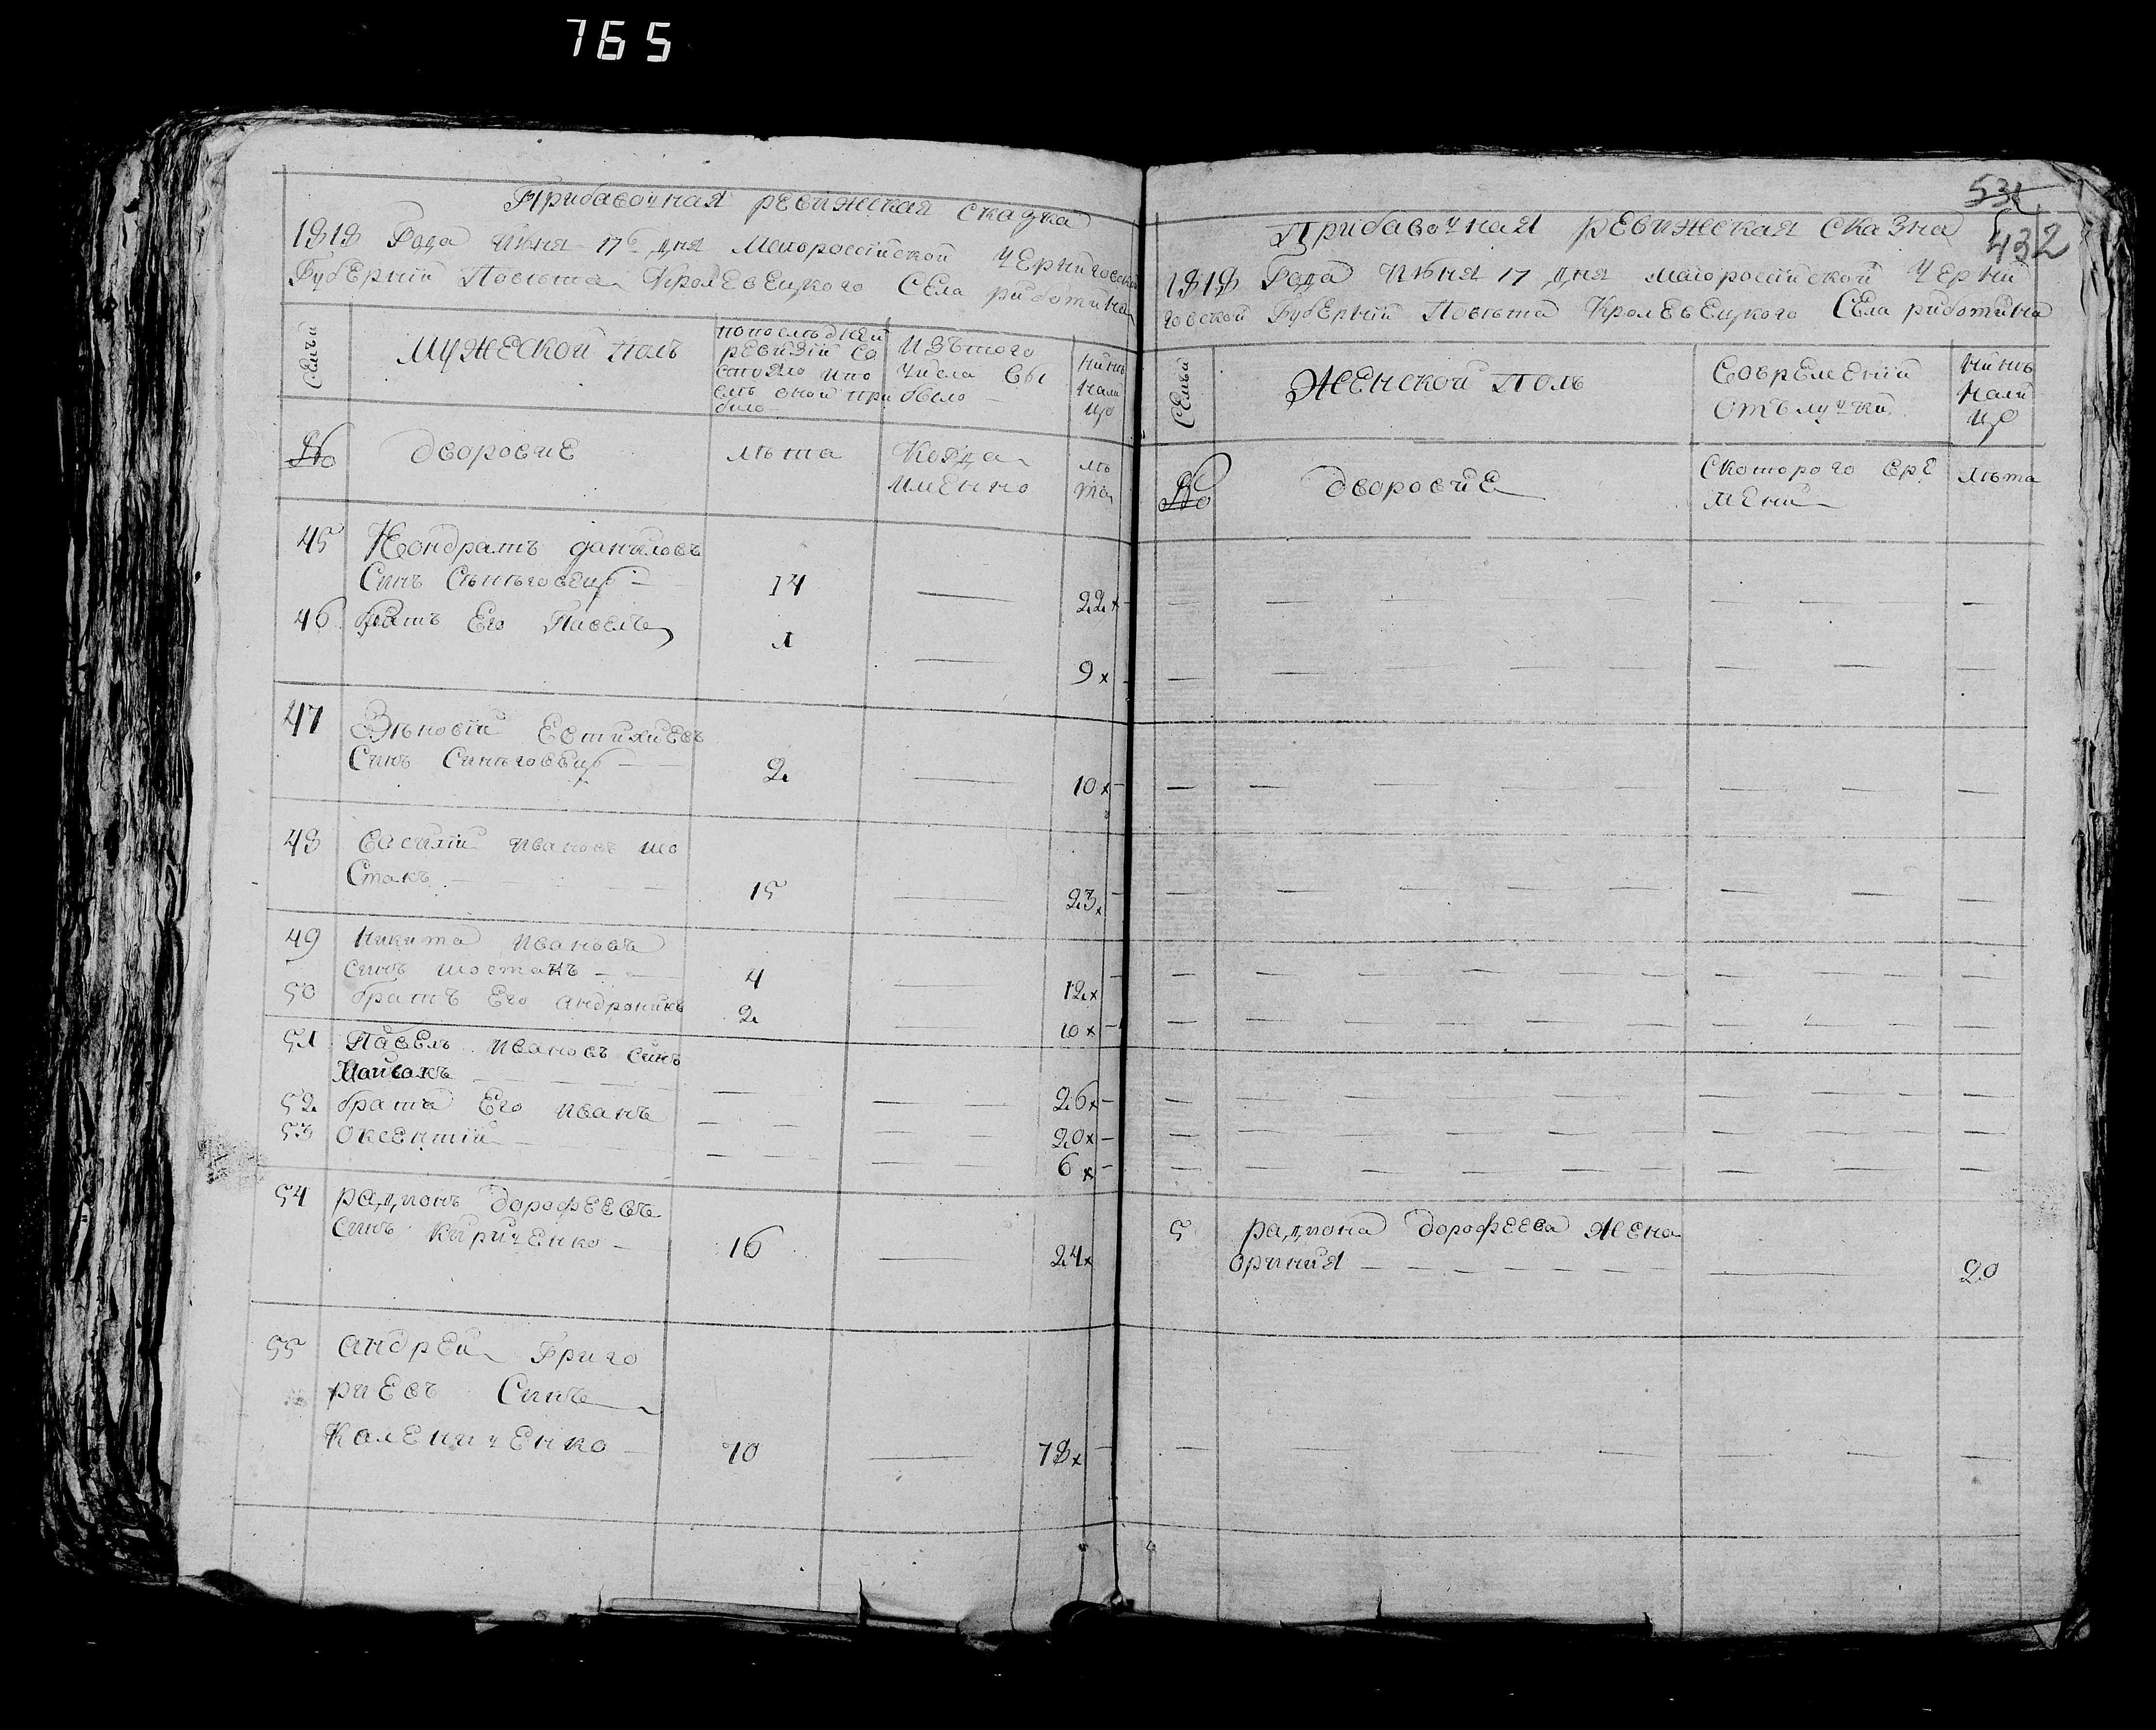 765
Прибавочная ревижская сказка
1818 Года Июня 17го дня Малороссійской Черниговской
Губерній Повѣта Кролевецкого Села риботина
Семъи
Мужеской полъ
попослѣдней
ревизій со
стояло ипо
слѣ оной при
било
Изътого
числа вы
было
нинѣ
нали
цо
№
дворовие
лѣта
Когда
именно
лѣ
та
45 Кондратъ даниловъ
Синъ Сѣнѣговец
14
22 х
46 братъ Его Павелъ
1
9 х
47 Зѣновій Евтихиевъ
Синъ Синѣговец
2
10 х
48 василій ивановъ шо
Стакъ
15
23 х
49 никита ивановъ
синъ шостакъ
4
12 х
50 братъ Его андроникъ
2
10 х
51 Павелъ ивановъ синъ
26 х
52 брата Его иванъ
20 х
53 оксентій
6 х
54 радионъ дорофеевъ
синъ Кириченко
16
24 х
55 андрей Григо
риевъ Синъ
Калениченко
70
78 х
532
432
Прибавочная ревижская сказка
1818 Года Июня 17 дня малороссійской Черни
говской Губерній Повѣта Кролевецкого Села риботина
Семьи
Женской полъ
Современий
отълучки
нинѣ
нали
цо
№
дворовие
Скоторого вре
мени
лѣта
5 радиона дорофеева жена
ориния
20